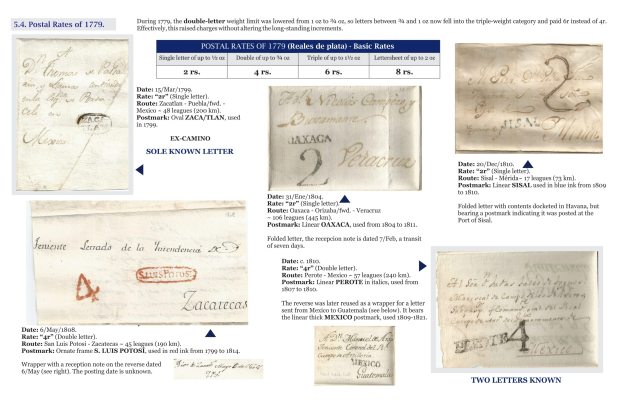 5.4. Postal Rates of 1779.
During 1779, the double-letter weight limit was lowered from 1 oz to ¾ oz, so letters between ¾ and 1 oz now fell into the triple-weight category and paid 6r instead of 4r.
Effectively, this raised charges without altering the long-standing increments.
POSTAL RATES OF 1779 (Reales de plata) - Basic Rates
Single letter of up to ½ oz
Double of up to ¾ oz
Triple of up to 1½ oz
Lettersheet of up to 2 oz
2 rs.
4 rs.
6 rs.
8 rs.
Date: 15/Mar/1799.
Rate: "2r" (Single letter).
Route: Zacatlan - Puebla/fwd. -
Mexico ~ 48 leagues (200 km).
Postmark: Oval ZACA/TLAN, used
in 1799.
EX-CAMINO
SOLE KNOWN LETTER
Mexico
OAXACA
2
Veracruz
Date: 31/Ene/1804.
Rate: "2r" (Single letter).
Route: Oaxaca - Orizaba/fwd. - Veracruz
~ 106 leagues (445 km).
Postmark: Linear OAXACA, used from 1804 to 1811.
Folded letter, the recepcion note is dated 7/Feb, a transit
of seven days.
2
SISAL
Date: 20/Dec/1810.
Rate: "2r" (Single letter).
Route: Sisal - Mérida~ 17 leagues (73 km).
Postmark: Linear SISAL used in blue ink from 1809
to 1810.
Folded letter with contents docketed in Havana, but
bearing a postmark indicating it was posted at the
Port of Sisal.
Teniente Letrado de la Intendencia de
4
S.LUIS POTOSI
Zacatecas
Date: 6/May/1808.
Rate: "4r" (Double letter).
Route: San Luis Potosi - Zacatecas ~ 45 leagues (190 km).
Postmark: Ornate frame S. LUIS POTOSÍ, used in red ink from 1799 to 1814.
Wrapper with a reception note on the reverse dated
6/May (see right). The posting date is unknown.
Date: c. 1810.
Rate: "4r" (Double letter).
Route: Perote - Mexico ~ 57 leagues (240 km).
Postmark: Linear PEROTE in italics, used from
1807 to 1810.
The reverse was later reused as a wrapper for a letter
sent from Mexico to Guatemala (see below). It bears
the linear thick MEXICO postmark, used 1809-1821.
MEXICO
Guatemala
PEROTE
4
Mexico
TWO LETTERS KNOWN